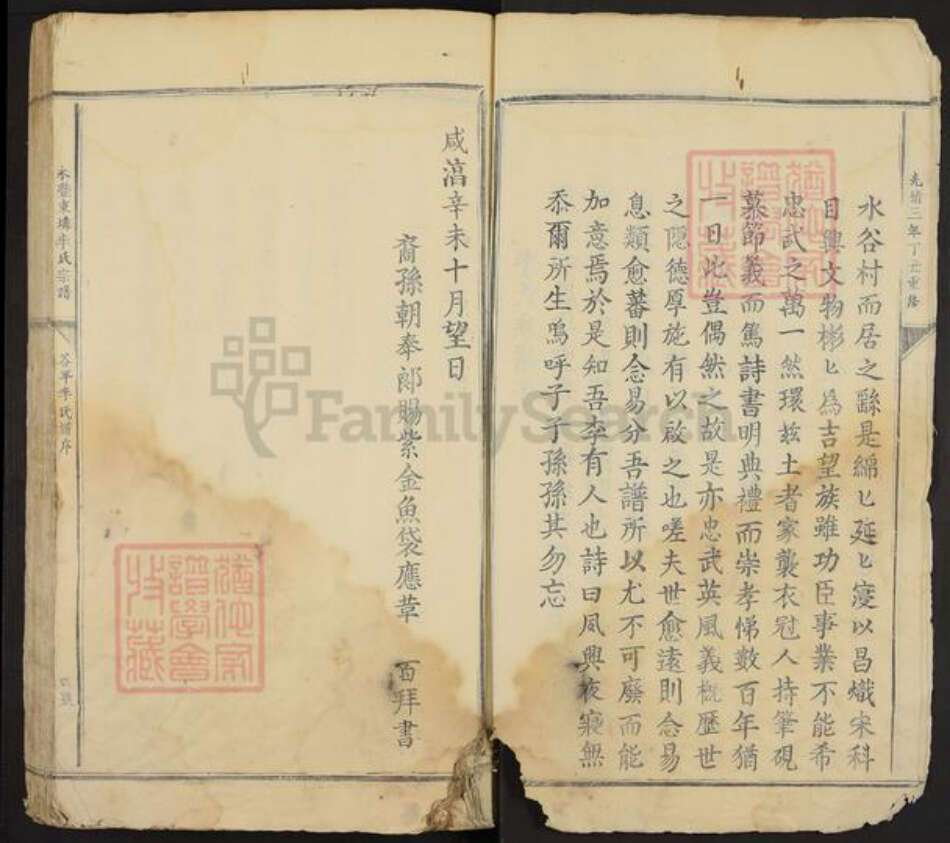 光緒三年丁丑重脩
水谷村而居之繇是綿匕延匕寖以昌熾宋科
目興文物彬匕為吉望族雖功臣事業不能希
忠武之萬一然環玆土者家襲衣冠人持筆硯
慕節義而篤詩書明典禮而崇孝悌數百年猶
一日此豈偶然之故是亦忠武英風義槪歷世
之隱德厚施有以啟之也嗟夫世愈遠則念易
息類愈蕃則念易分吾譜所以尤不可廢而能
加意焉於是知吾李有人也詩曰夙興夜寐無
忝爾所生嗚呼子子孫孫其勿忘
咸淳辛未十月望日
裔孫朝奉郎賜紫金魚袋應革 百拜書
李氏宗譜
谷平李氏譜序
猶他家譜學會收藏
猶他家譜學會收藏
FamilySearch